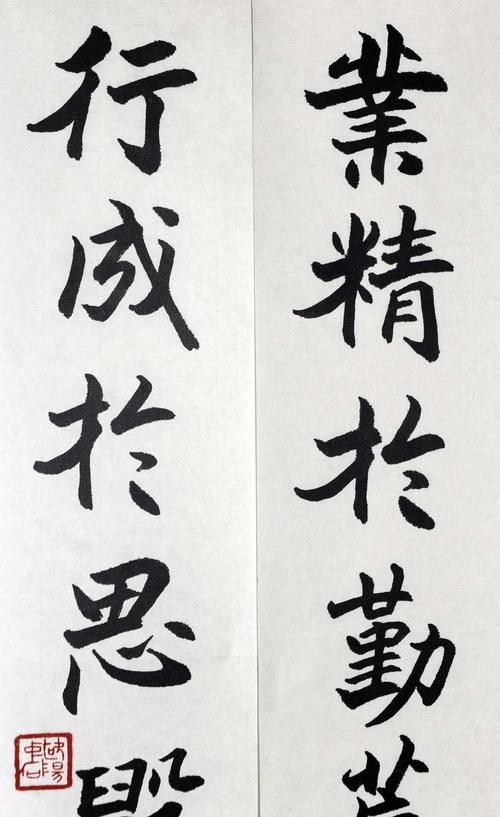 業精於勤荒
行成於思毀